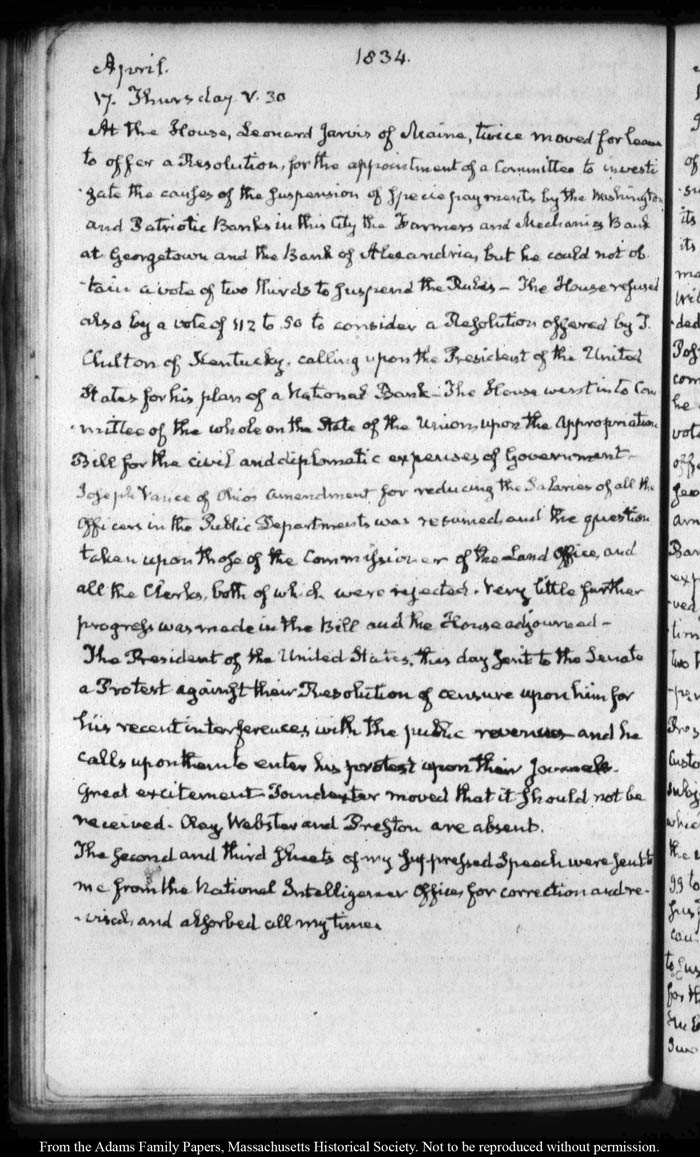 1834.
April.
17. Thursday. V. 30
At the House, Leonard Jarvis of Maine, twice moved for leave
to offer a Resolution, for the appointment of a Committee to investi
-gate the causes of the suspension of specie payments by the Washington
and Patriotic Banks in this City the Farmers and Mechanics Bank
at Georgetown and the Bank of Alexandria, but he could not ob
-tain a vote of two thirds to suspend the Rules – The House refused
also by a vote of 112 to 50 to consider a Resolution offered by T.
Chilton of Kentucky, calling upon the President of the United
States for his plan of a National Bank – The House went into Com
-mittee of the whole on the State of the Union, upon the Appropriation
Bill for the civil and diplomatic expenses of Government –
Joseph Vance of Ohio's amendment for reducing the Salaries of all the
Officers in the Public Departments was resumed, and the question
taken upon those of the Commissioner of the Land Office, and
all the Clerks, both of which were rejected. Very little further
progress was made in the Bill and the House adjourned –
The President of the United States, this day sent to the Senate
a Protest against their Resolution of censure upon him for
his recent interferences with the public revenues and he
calls upon them to enter his protest upon their Journals.
Great excitement Poindexter moved that it should not be
received. Clay, Webster and Preston are absent.
The second and third sheets of my suppressed Speech were sent to
me from the National Intelligencer Office, for correction and re-
-visal, and absorbed all my time.
From the Adams Family Papers, Massachusetts Historical Society. Not to be reproduced without permission.